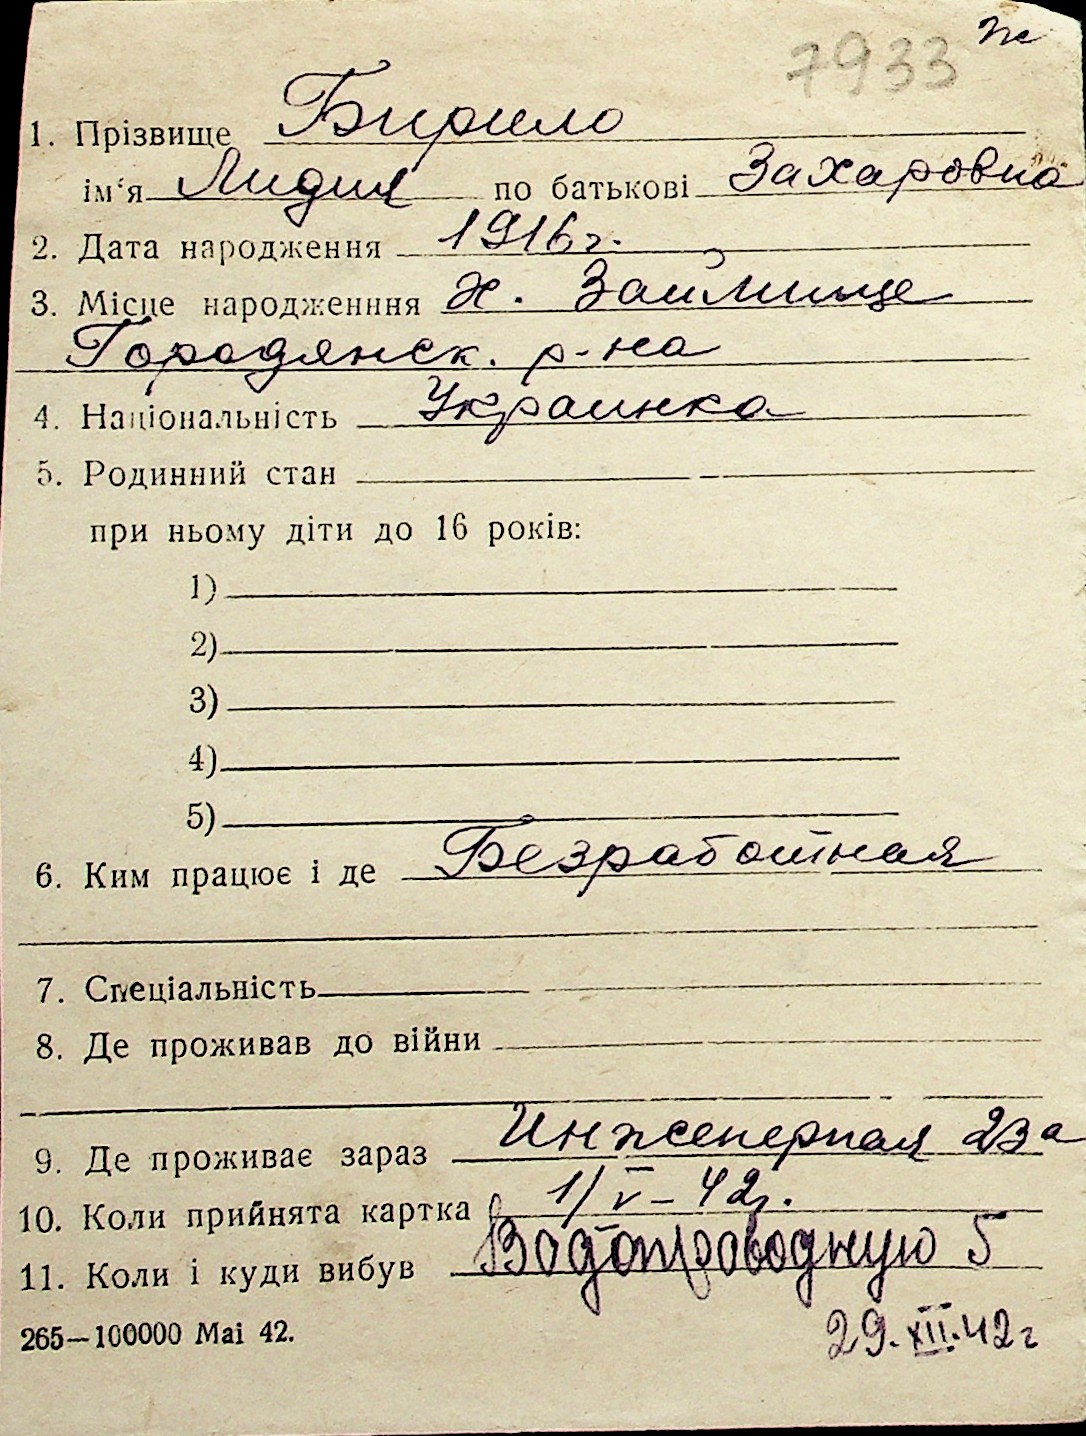 7933 ж
1. Прізвище Бирило
ім‘я Лидия по батькові Захаровна
2. Дата народження 1916 г.
3. Місце народженння х. Займище
Городянск. р-на
4. Національність Украинка
5. Родинний стан
при ньому діти до 16 років:
1)
2)
3)
4)
5)
6. Ким працює і де Безработная
7. Спеціальність
8. Де проживав до війни
9. Де проживає зараз Инженерная 23а
10. Коли прийнята картка 1/V-42г.
11. Коли і куди вибув Водопроводную 5
265—100000 Маі 42.
29.XII.42г